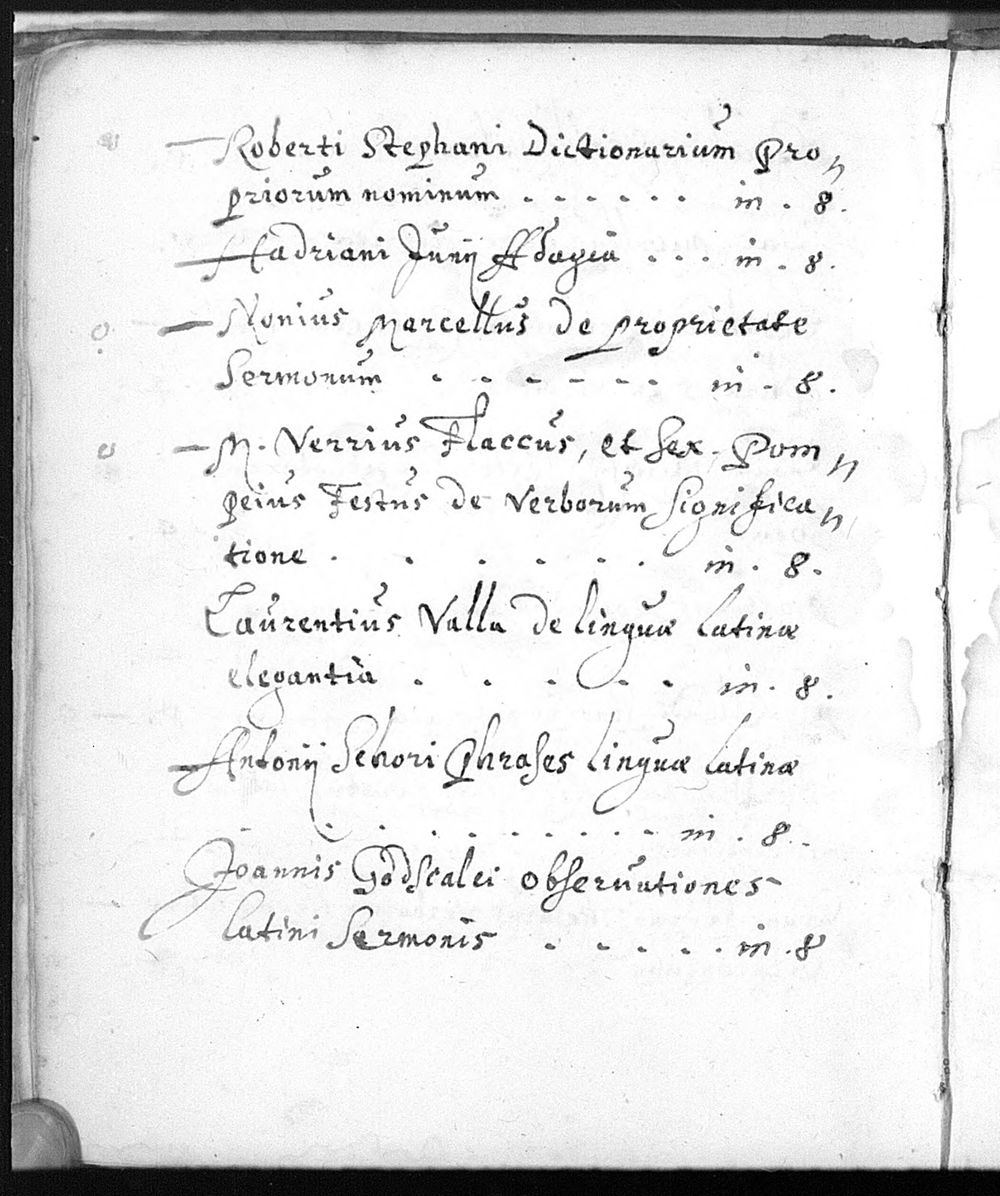 — Roberti Stephani Dictionarium Pro〃
priorum nominum . . . . . . in . 8 .
— Hadriani Junij Adagia . . . in . 8 .
— Nonius Marcellus de proprietate
Sermonum . . . . . . in . 8 .
— M. Verrius Flaccus, et Sex. Pom〃
peius Festus de Verborum Significa〃
tione . . . . . . . in . 8 .
Laurentius Valla de linguæ latinæ
elegantia . . . . . in . 8 .
— Antonij Schori Phrases linguæ latinæ
. . . . . . . . . in . 8 .
Joannis Godscalci observationes
latini Sermonis . . . . . in . 8